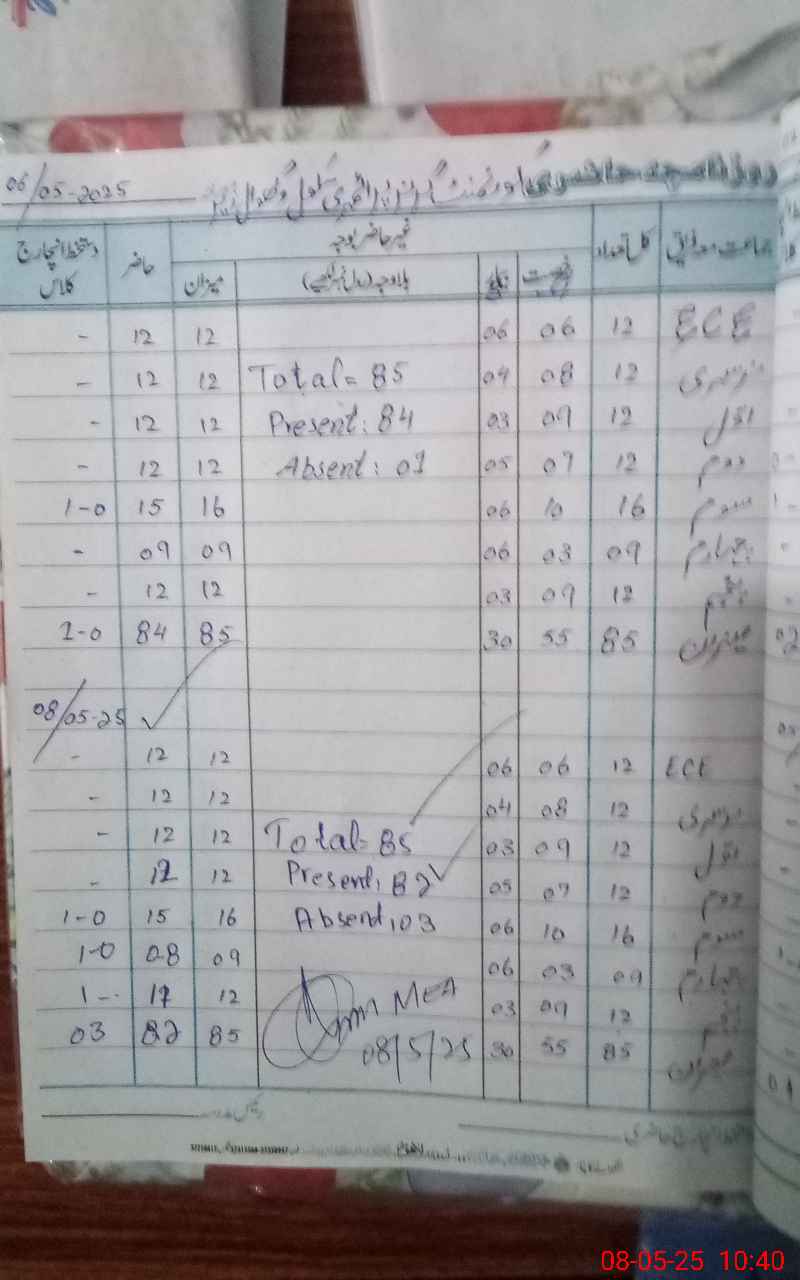 06/05-2025
جماعت کل تعداد غیر حاضر بوجہ حاضر دستخط انچارج
میزان بلاوجہ کلاس
ECE 12 06 06 12 12 -
نرسری 12 08 04 Total = 85 12 12 -
اول 12 09 03 Present: 84 12 12 -
دوم 12 07 05 Absent: 01 12 12 -
سوم 16 10 06 16 15 1-0
چہارم 09 03 06 09 09 -
پنجم 12 09 03 12 12 -
میزان 85 55 30 85 84 1-0
08/05-25
ECE 12 06 06 12 12 -
نرسری 12 08 04 12 12 -
اول 12 09 03 Total = 85 12 12 -
دوم 12 07 05 Present, 82 12 12 -
سوم 16 10 06 Absent, 03 16 15 1-0
چہارم 09 03 06 09 08 1-0
پنجم 12 09 03 MEA 12 1-
میزان 85 55 30 08/5/25 85 82 03
08-05-25 10:40